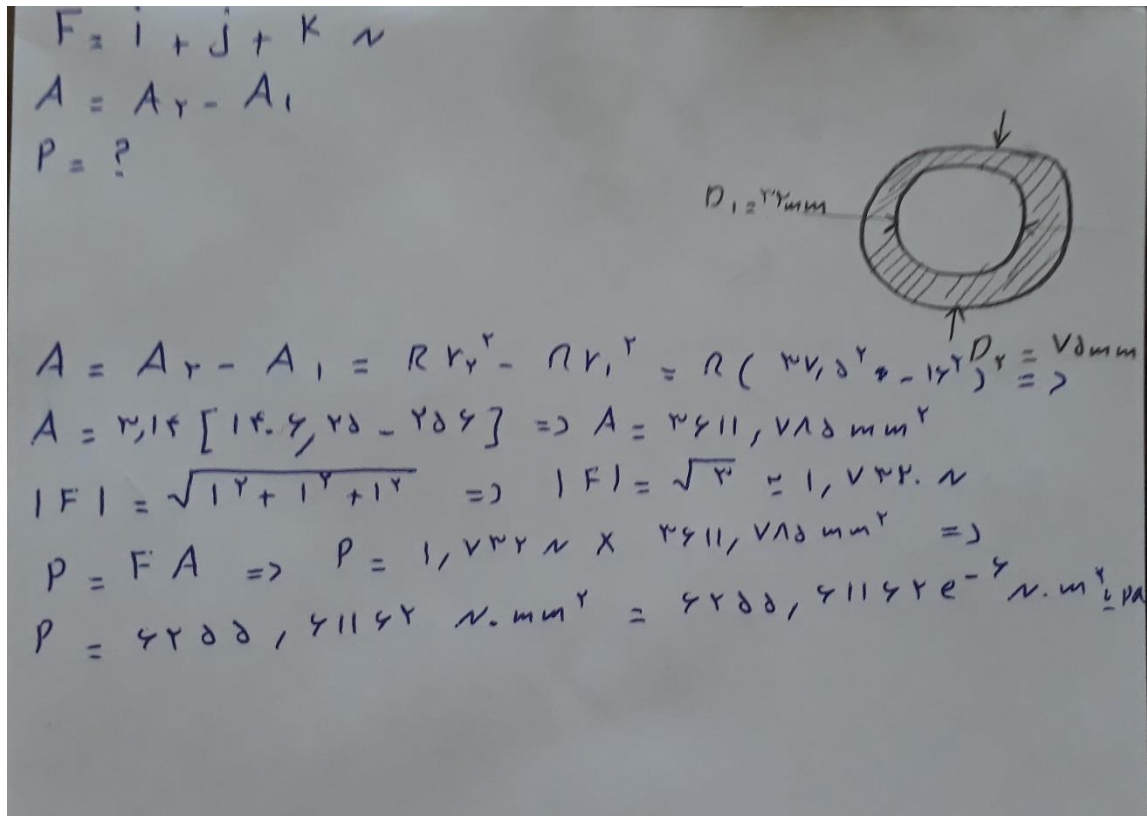 F = i + j + K N
A = A۲ - A۱
P = ?
D۱ = ۳۲mm
D۲ = ۷۵mm
A = A۲ - A۱ = π r۲^۲ - π r۱^۲ = π ( ۳۷,۵^۲ - ۱۶^۲ ) =>
A = ۳,۱۴ [ ۱۴۰۶,۲۵ - ۲۵۶ ] => A = ۳۶۱۱,۷۸۵ mm^۲
|F| = √(۱^۲ + ۱^۲ + ۱^۲) => |F| = √۳ ≃ ۱,۷۳۲. N
P = F A => P = ۱,۷۳۲ N × ۳۶۱۱,۷۸۵ mm^۲ =>
P = ۶۲۵۵,۶۱۱۶۲ N.mm^۲ = ۶۲۵۵,۶۱۱۶۲e^-۶ N.m^۲ = pa